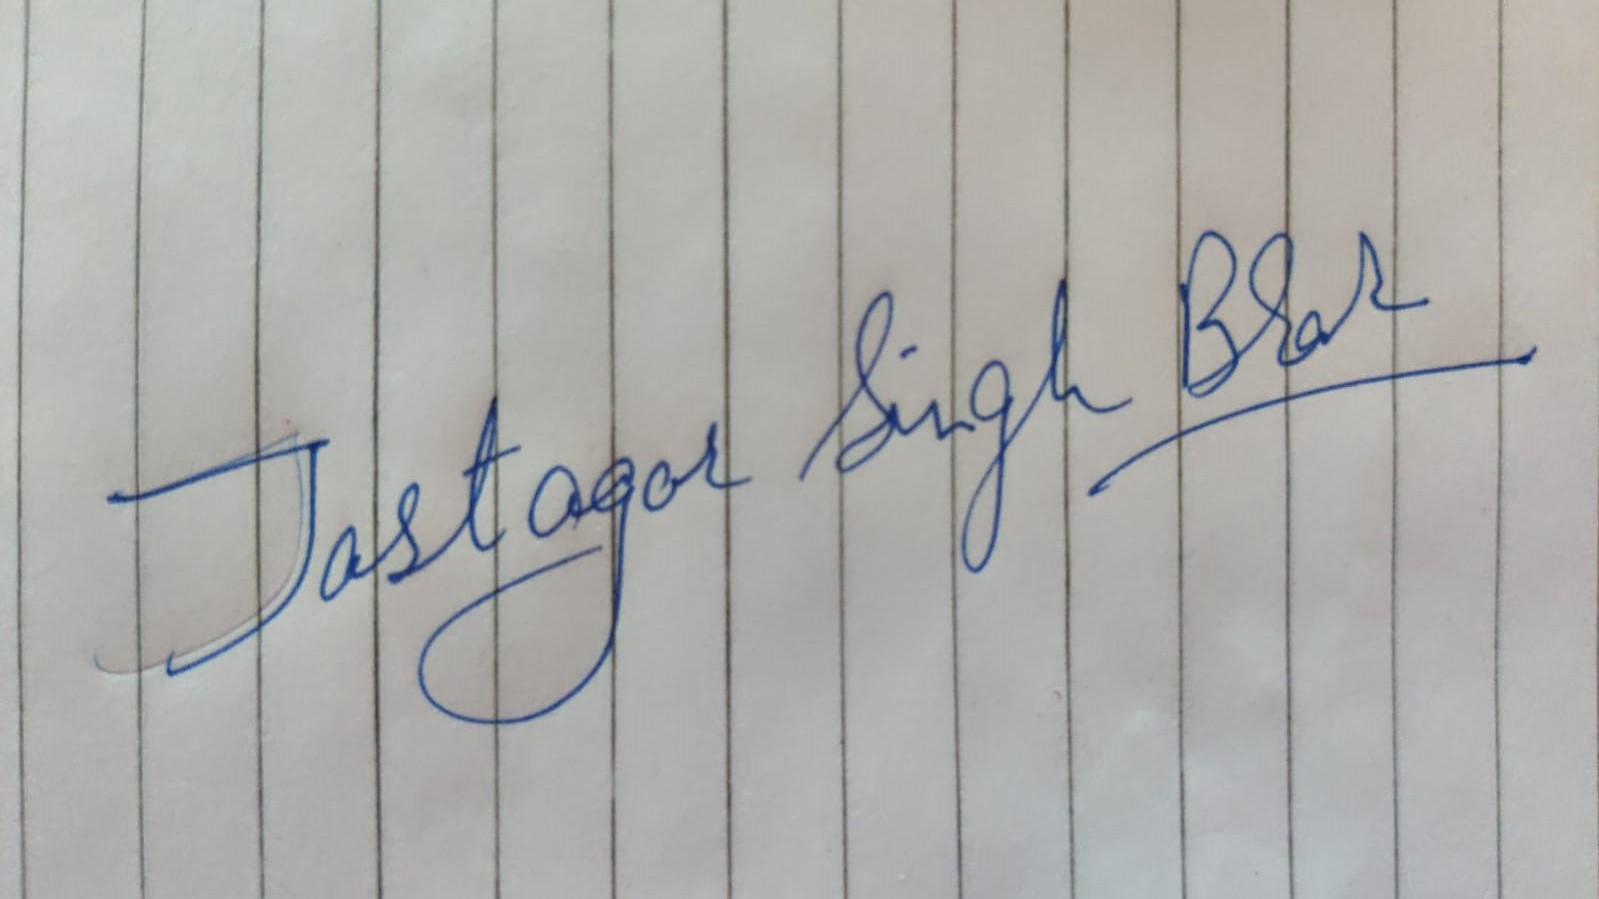 Jastagar Singh Brar